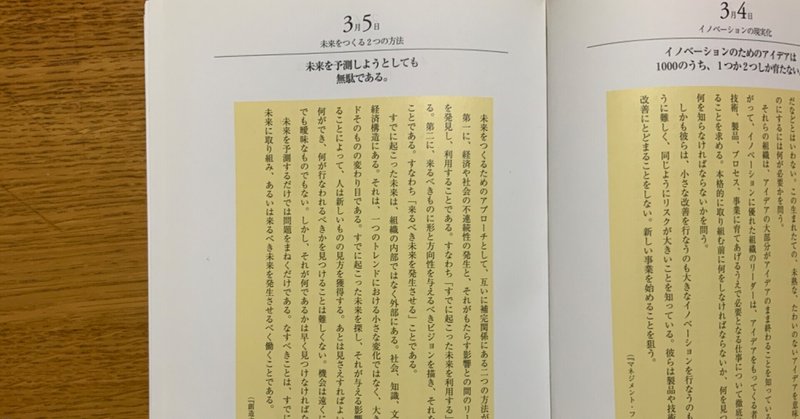 3月4日
イノベーションの現実化
イノベーションのためのアイデアは
1000のうち、1つか2つしか育たない。
だなどとはいわない。この生まれたての、未熟な、たわいのないアイデアを意
のにするには何が必要かを問う。
それらの組織は、アイデアの大部分がアイデアのまま終わることを知ってい
がって、イノベーションに優れた組織のリーダーは、アイデアをもってくる者
技術、製品、プロセス、事業に育てあげるうえで必要となる仕事について徹底
ることを求める。本格的に取り組む前に何をしなければならないか、何を見つ
何を知らなければならないかを問う。
しかも彼らは、小さな改善を行なうのも大きなイノベーションを行なうのも
うに難しく、同じようにリスクが大きいことを知っている。彼らは製品や技術
改善にとどまることをしない。新しい事業を始めることを狙う。
(『マネジメント・フ
3月5日
未来をつくる2つの方法
未来を予測しようとしても
無駄である。
未来をつくるためのアプローチとして、互いに補完関係にある二つの方法が
第一に、経済や社会の不連続性の発生と、それがもたらす影響との間のリー
を発見し、利用することである。すなわち「すでに起こった未来を利用する」
る。第二に、来るべきものに形と方向性を与えるべきビジョンを描き、それを
ことである。すなわち「来るべき未来を発生させる」ことである。
すでに起こった未来は、組織の内部ではなく外部にある。社会、知識、文
経済構造にある。それは、一つのトレンドにおける小さな変化ではなく、大き
ドそのものの変わり目である。すでに起こった未来を探し、それが与える影響
ることによって、人は新しいものの見方を獲得する。あとは見さえすればよい
何ができ、何が行なわれるべきかを見つけることは難しくない。機会は遠くに
でも曖昧なものでもない。しかし、それが何であるかは早く見つけなければな
未来を予測するだけでは問題をまねくだけである。なすべきことは、すで
未来に取り組み、あるいは来るべき未来を発生させるべく働くことである。
(『創造